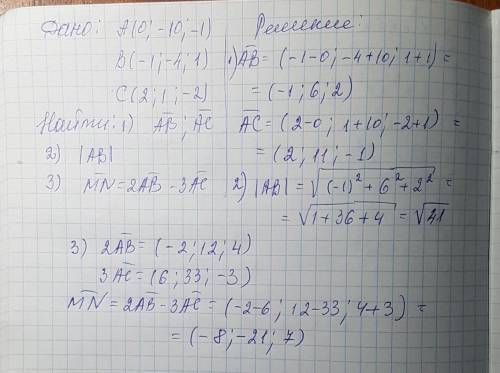 Дано: A(0; -10; -1)
B(-1; -4; 1)
C(2; 1; -2)
Найти: 1) AB̅; AC̅
2) |AB|
3) M̅N̅=2AB̅-3AC̅
Решение:
1) AB̅ = (-1-0; -4+10; 1+1) =
= (-1; 6; 2)
AC̅ = (2-0; 1+10; -2+1) =
= (2; 11; -1)
2) |AB| = √((-1)²+6²+2²) =
= √(1+36+4) = √41
3) 2AB̅ = (-2; 12; 4)
3AC̅ = (6; 33; -3)
M̅N̅ = 2AB̅-3AC̅ = (-2-6; 12-33; 4+3) =
= (-8; -21; 7)